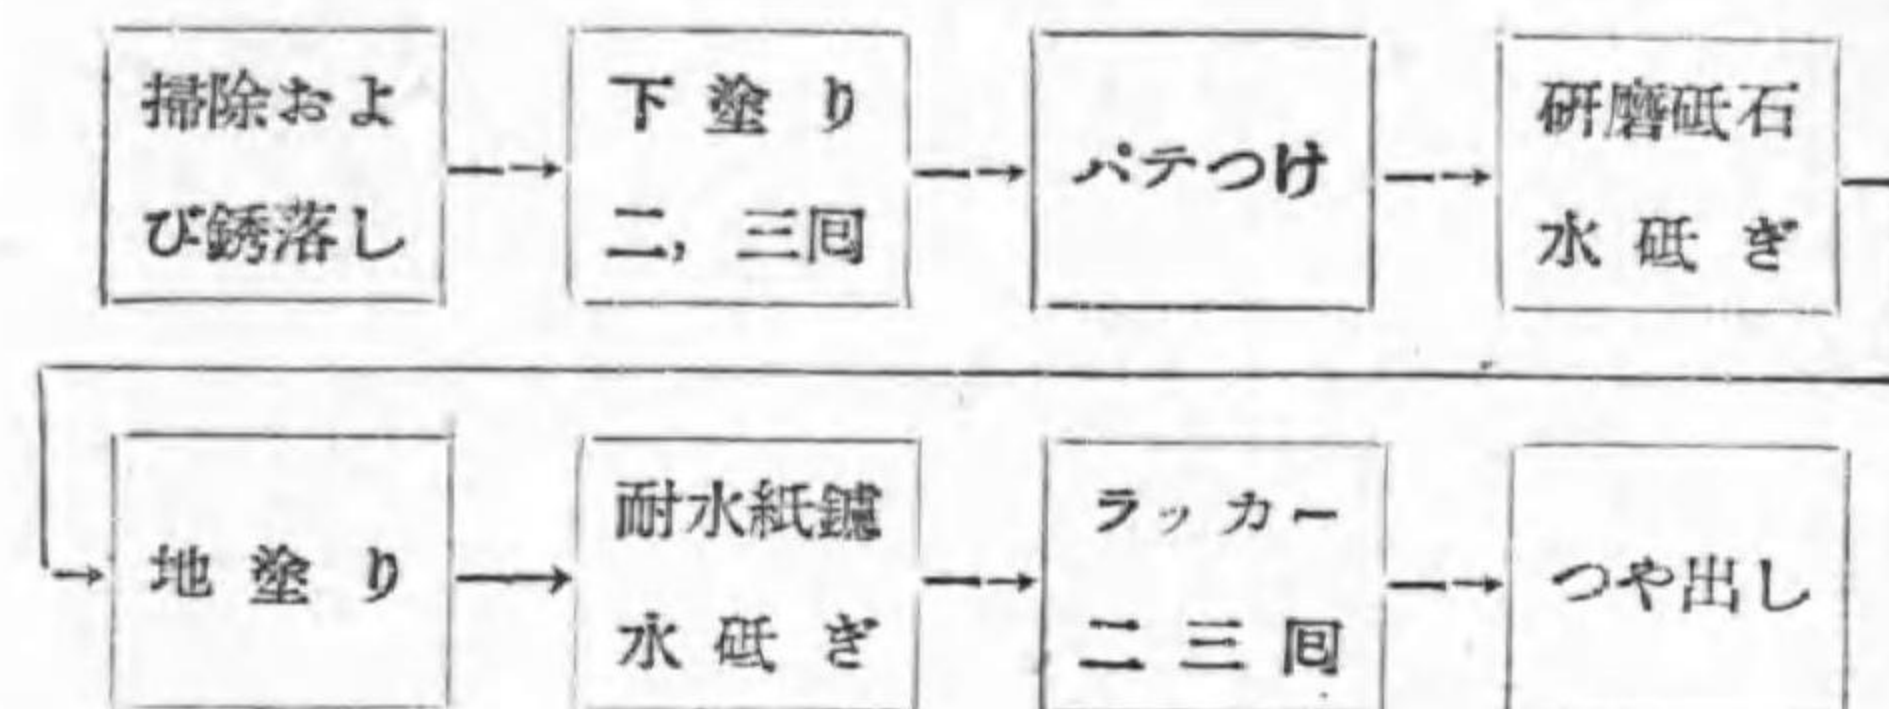 掃除およ
び銹落し
下塗り
二,三囘
パテつけ
研磨砥石
水砥ぎ
地塗り
耐水紙鑢
水砥ぎ
ラッカー
二三囘
つや出し